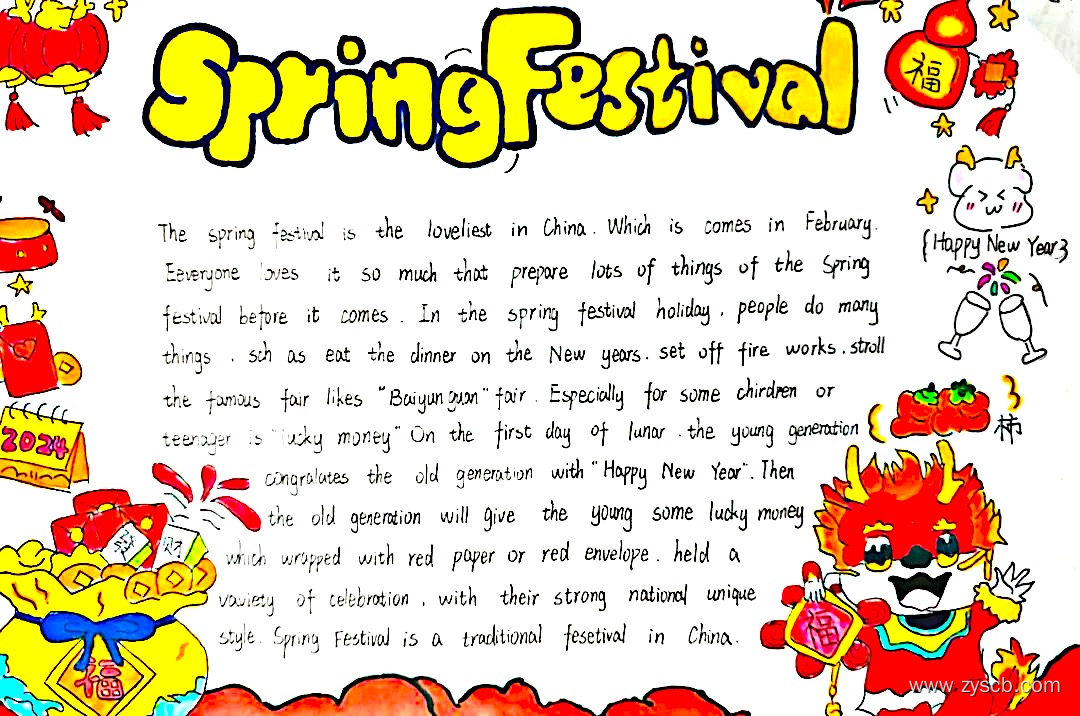 Spring Festival
福
The spring festival is the loveliest in China. Which is comes in February.
Eeveryone loves it so much that prepare lots of things of the Spring
festival before it comes. In the spring festival holiday, people do many
things, sch as eat the dinner on the New years. set off fire works, stroll
the famous fair likes "Baiyunguan" fair. Especially for some chirdren or
teenager is "lucky money" On the first day of lunar, the young generation
congralates the old generation with "Happy New Year". Then
the old generation will give the young some lucky money
which wrapped with red paper or red envelope. held a
vaviety of celebration, with their strong national unique
style. Spring Festival is a traditional fesetival in China.
{Happy New Year}
2024
柿
发
财
福
福
www.zyscb.com